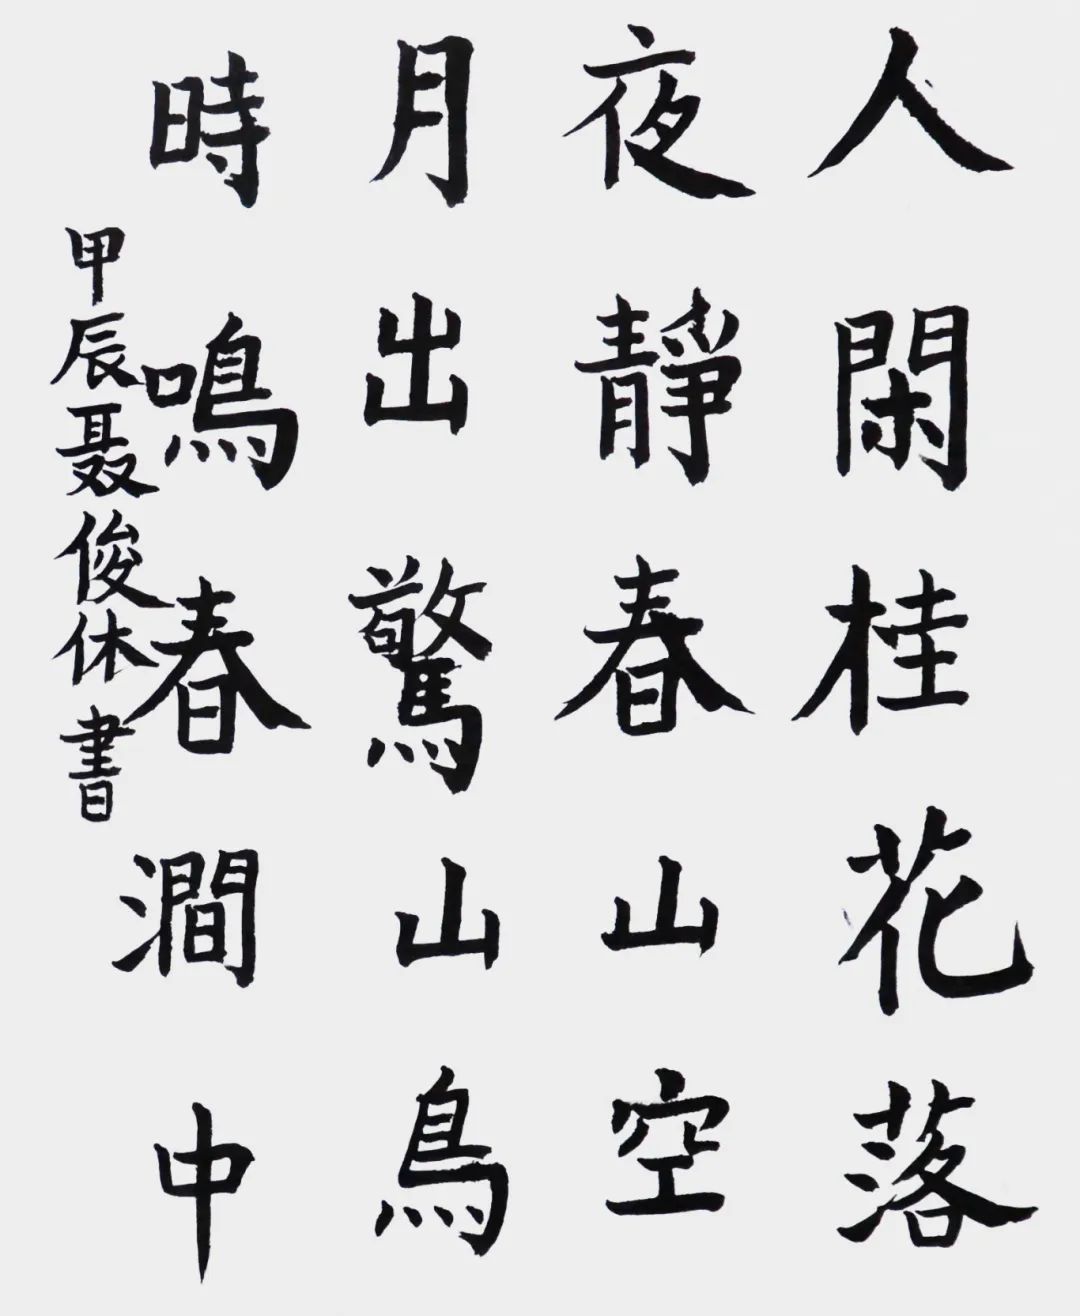 人閑桂花落
夜靜春山空
月出驚山鳥
時鳴春澗中
甲辰聂俊休書